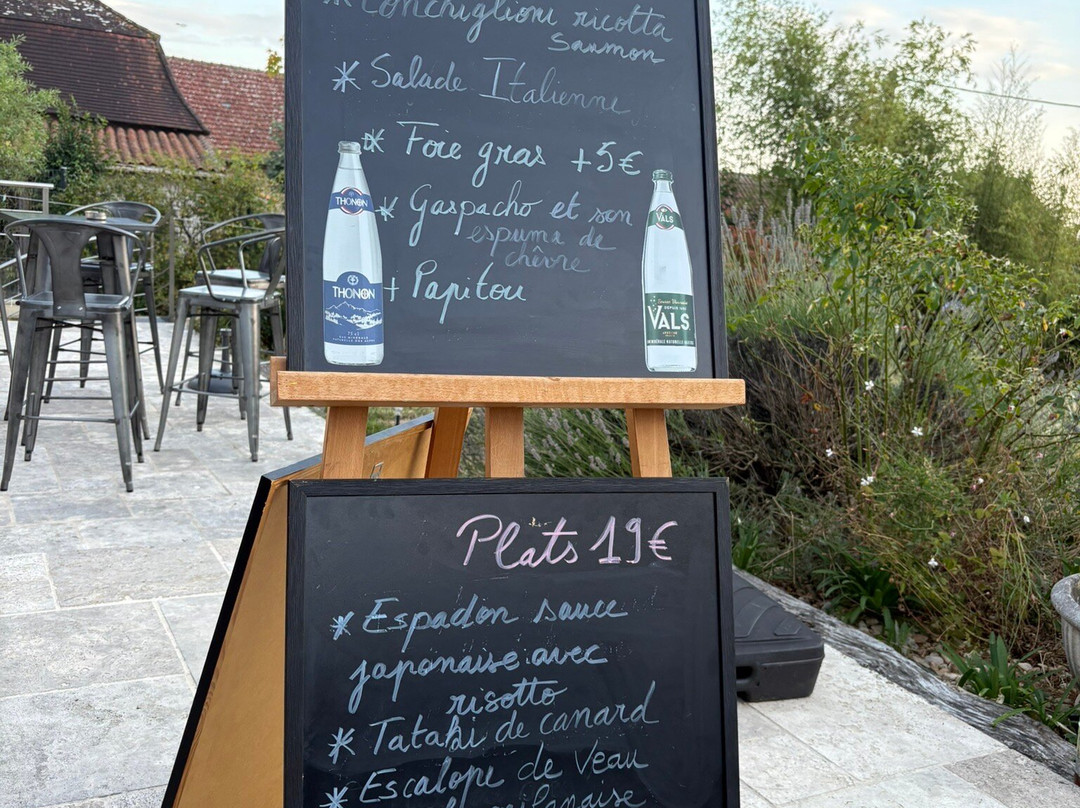 * Conchiglioni ricotta
Saumon
* Salade Italienne
* Foie gras +5€
* Gaspacho et son
espuma de
chèvre
+ Papitou
THONON
THONON
VALS
VALS
Plats 19€
* Espadon sauce
japonaise avec
risotto
* Tataki de canard
* Escalope de Veau
milanaise